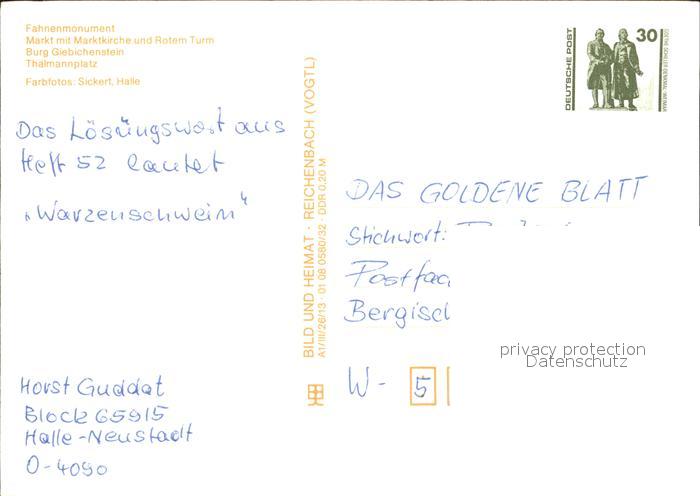 Fahnenmonument
Markt mit Marktkirche und Rotem Turm
Burg Giebichenstein
Thälmannplatz
Farbfotos: Sickert, Halle
Das Lösungswort aus
Heft 52 lautet
„Warzenschwein“
Horst Guddat
Block 659/5
Halle-Neustadt
O-4090
BILD UND HEIMAT · REICHENBACH (VOGTL)
A1/III/26/13 · 01 08 0580/32 · DDR 0,20 M
DEUTSCHE POST
30
GOETHE-SCHILLER-DENKMAL WEIMAR
DAS GOLDENE BLATT
Stichwort:
Postfac
Bergisc
W- 5
privacy protection
Datenschutz